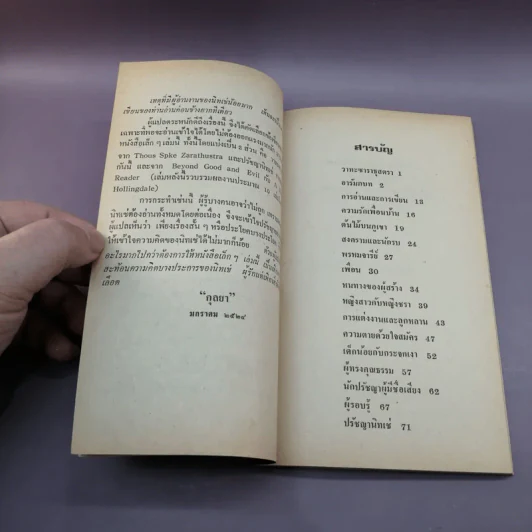 เหตุที่มีผู้อ่านงานของนิทเช่น้อยมาก
เขียนของท่านอ่านค่อนข้างยากทีเดียว
ผู้แปลตระหนักดีถึงเรื่องนี้ จึงได้
เฉพาะที่พอจะอ่านเข้าใจได้โดยไม่ต้อง
หนังสือเล็กๆ เล่มนี้ ทั้งนี้โดยแบ่งเป็น ๒ ส่วน คือ
จาก Thous Spke Zarathustra และปรัชญานิทเช่
กันนี้ และจาก Beyond Good and Evil กับ A
Reader (เล่มหลังนี้รวบรวมผลงานประมาณ 10
Hollingdale)
การกระทำเช่นนี้ ผู้รู้บางคนอาจว่าไม่ถูก
นิทเช่ต้องอ่านทั้งหมดโดยต่อเนื่อง จึงจะเข้าใจปรัชญา
ผู้แปลเห็นว่า เพียงเรื่องสั้นๆ หรือประโยคบางประโยค
ให้เข้าใจความคิดของนิทเช่ได้ไม่มากก็น้อย
อะไรมากไปกว่าต้องการให้หนังสือเล็กๆ เล่มนี้
สะท้อนความคิดบางประการของนิทเช่
เลือด
“กุลยา”
มกราคม ๒๕๒๔
สารบัญ
วาทะซาราธุสตรา 1
อารัมภบท 2
การอ่านและการเขียน 12
ความรักเพื่อนบ้าน 16
ต้นไม้บนภูเขา 19
สงครามและนักรบ 24
พรหมจารีย์ 27
เพื่อน 30
หนทางของผู้สร้าง 34
หญิงสาวกับหญิงชรา 39
การแต่งงานและลูกหลาน 43
ความตายด้วยใจสมัคร 47
เด็กน้อยกับกระจกเงา 52
ผู้ทรงคุณธรรม 57
นักปรัชญาผู้มีชื่อเสียง 62
ผู้รอบรู้ 67
ปรัชญานิทเช่ 71